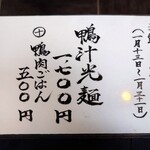 (一月十三日〜一月三十一日)
鴨汁光麺
一、七〇〇円
㊉鴨肉ごはん
五〇〇円